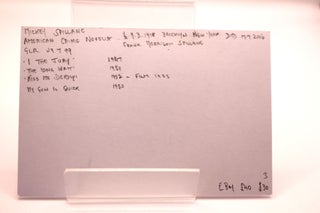 MICKEY SPILLANE
AMERICAN CRIME NOVELIST B. 9.3.1918 BROOKLYN NEW YORK D. 17.7.2006
FRANK MORRISON SPILLANE
- I THE JURY 1947
- THE LONG WAIT 1951
- KISS ME DEADLY 1952 - FILM 1955
MY GUN IS QUICK 1950
3
EBAY £40 $30